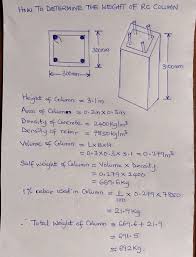 HOW TO DETERMINE THE WEIGHT OF RC COLUMN
300mm
300mm
3100mm
Height of Column = 3.1m
Area of Column = 0.3m x 0.3m
Density of Concrete = 2400Kg/m³
Density of rebar = 7850Kg/m³
Volume of Column = L x B x H
= 0.3 x 0.3 x 3.1 = 0.279m³
Self weight of Column = Volume x Density
= 0.279 x 2400
= 669.6Kg
1% rebar used in Column = 1/100 x 0.279 x 7850
= 21.9Kg
∴ Total Weight of Column = 669.6 + 21.9
= 691.5
= 692Kg.